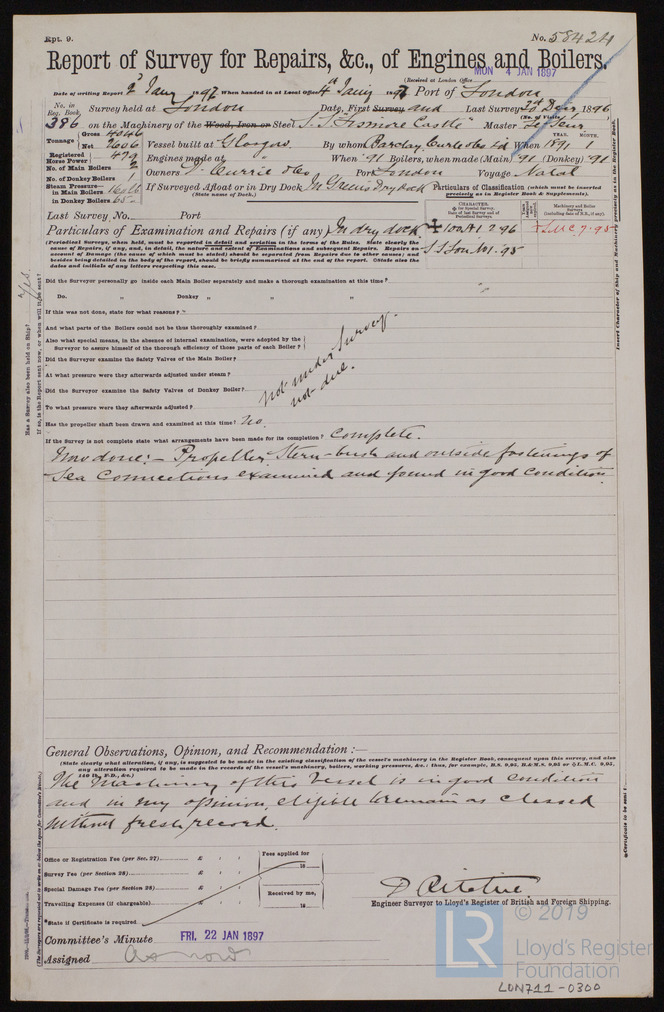 Rpt. 9.
No. 58424
Report of Survey for Repairs, &c., of Engines and Boilers.
(Received at London Office MON 4 JAN 1897
Date of writing Report 2 Jany 1897 When handed in at Local Office 4th Jany 1897 Port of London
No. in Reg. Book. Survey held at London Date, First Survey and Last Survey 30th Decr 1896
(No. of Visits 1)
386 on the Machinery of the Wood, Iron or Steel S.S. "Lismore Castle" Master Le Seur
Tonnage Gross 4046 Net 2606 Vessel built at Glasgow By whom Barclay Curle & Co Ld When 1891 1
YEAR. MONTH.
Registered Horse Power 479 Engines made at " When '91 Boilers, when made (Main) '91 (Donkey) '91
No. of Main Boilers 2
No. of Donkey Boilers 1 Owners D. Currie & Co Port London Voyage Natal
Steam Pressure in Main Boilers 160 lb in Donkey Boilers 65 If Surveyed Afloat or in Dry Dock In Greens Dry dock
(State name of Dock.)
Particulars of Classification (which must be inserted precisely as in Register Book & Supplements).
Last Survey No. Port
CHARACTER.
Date of last Survey and of Periodical Surveys.
Machinery and Boiler Surveys (including date of N.B., if any).
Particulars of Examination and Repairs (if any) In dry dock
100A1 2.96
LMC 7.95
S.S. Lon No1. 95
(Periodical Surveys, when held, must be reported in detail and seriatim in the terms of the Rules. State clearly the cause of Repairs, if any, and, in detail, the nature and extent of Examinations and subsequent Repairs. Repairs on account of Damage (the cause of which must be stated) should be separated from Repairs due to other causes; and besides being detailed in the body of the report, should be briefly summarised at the end of the report. State also the dates and initials of any letters respecting this case.
Did the Surveyor personally go inside each Main Boiler separately and make a thorough examination at this time?
Do. " Donkey " " "
If this was not done, state for what reasons?
And what parts of the Boilers could not be thus thoroughly examined?
Also what special means, in the absence of internal examination, were adopted by the Surveyor to assure himself of the thorough efficiency of those parts of each Boiler?
Did the Surveyor examine the Safety Valves of the Main Boiler?
At what pressure were they afterwards adjusted under steam?
Did the Surveyor examine the Safety Valves of Donkey Boiler?
To what pressure were they afterwards adjusted?
not under survey.
not due.
Has the propeller shaft been drawn and examined at this time? No.
If the Survey is not complete state what arrangements have been made for its completion? Complete.
Now done:- Propeller, Stern-bush and outside fastenings of
Sea Connections examined and found in good condition.
General Observations, Opinion, and Recommendation :—
(State clearly what alteration, if any, is suggested to be made in the existing classification of the vessel's machinery in the Register Book, consequent upon this survey, and also any alteration required to be made in the records of the vessel's machinery, boilers, working pressures, &c.: thus, for example, B.S. 9,95, B.&M.S. 9,95 or L.M.C. 9,95, 140 lb., F.D., &c.)
The Machinery of this Vessel is in good condition
and in my opinion, eligible to remain as classed
without fresh record.
Office or Registration Fee (per Sec. 27) £
Survey Fee (per Section 28) £
Special Damage Fee (per Section 28) £
Travelling Expenses (if chargeable) £
Fees applied for 18
Received by me, 18
*State if Certificate is required
D Ritchie
Engineer Surveyor to Lloyd's Register of British and Foreign Shipping.
Committee's Minute FRI. 22 JAN 1897
Assigned as now
Has a Survey also been held on Ship? Yes.
If so, is the Report sent now, or when will it be sent?
Insert Character of Ship and Machinery precisely as in the Register Book
LR
© 2019
Lloyd's Register
Foundation
LON711-0300